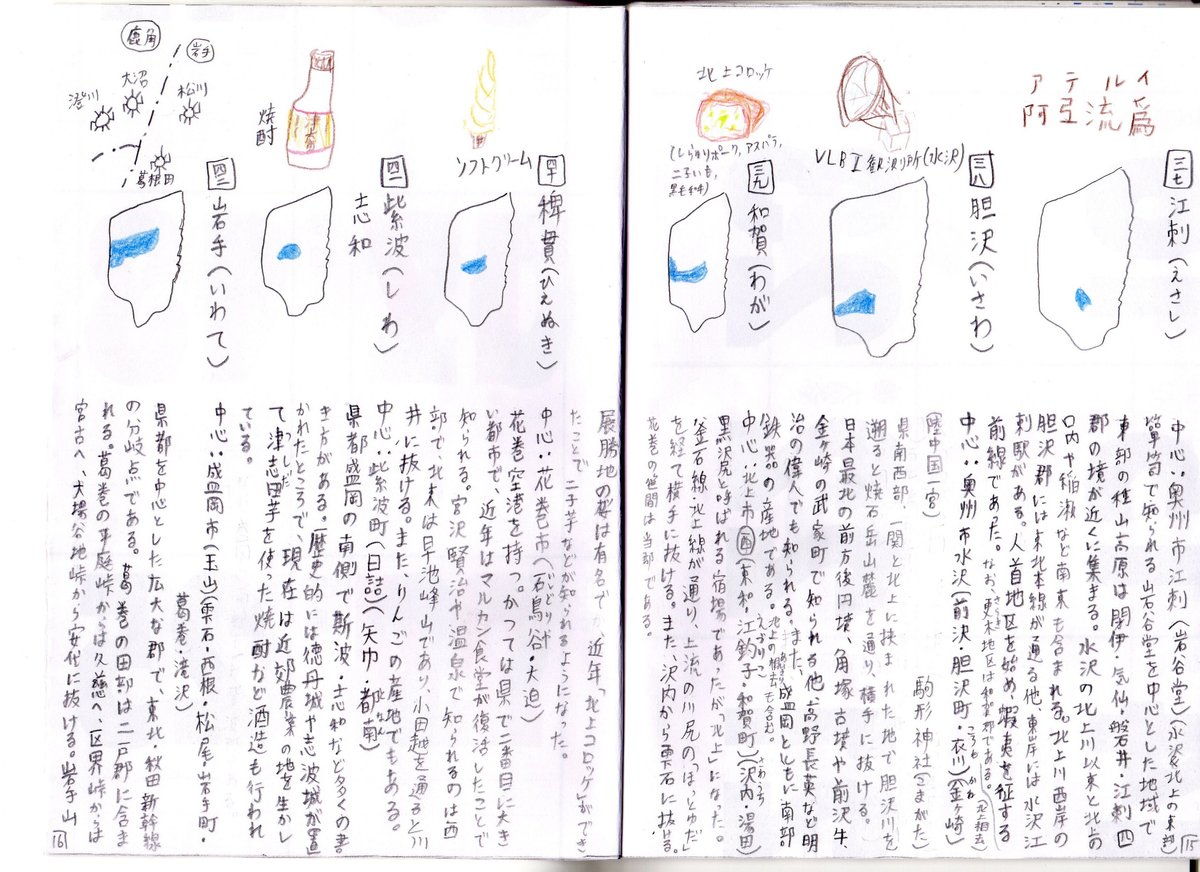 三七 江刺(えさし)
アテルイ
阿弖流為
中心:奥州市江刺(岩谷堂)(水沢北上の東部)
箪笥で知られる岩谷堂を中心とした地域で
東部の種山高原は閉伊・気仙・磐井・江刺四
郡の境が近くに集まる。水沢の北上川以東と北上の
口内や稲瀬など南東も含まれる。北上川西岸の
胆沢郡には東北本線が通る他、東岸には水沢江
刺駅がある。人首地区を始め、蝦夷を征する
前線であった。なお、更木地区は和賀郡である。(北上相去)
三八 胆沢(いさわ)
VLBI観測所(水沢)
中心:奥州市水沢(前沢・胆沢町・衣川)(金ヶ崎)
陸中国一宮 駒形神社(こまがた)
県南西部、一関と北上に挟まれた地で胆沢川を
遡ると焼石岳山麓を通り、横手に抜ける。
日本最北の前方後円墳、角塚古墳や前沢牛
金ヶ崎の武家町で知られる他、高野長英など明
治の偉人でも知られる。また、盛岡とともに南部
鉄器の産地である。北上の相去も含む。
三九 和賀(わが)
北上コロッケ
(しらゆりポーク,アスパラ,
二子いも,
黒毛和牛)
中心:北上市(東和,江釣子・和賀町)(沢内・湯田)
黒沢尻と呼ばれる宿場であったが「北上」になった。
釜石線北上線が通り、上流の川尻のほっとゆだ」
を経て横手に抜ける。また沢内から雫石に抜ける。
花巻の笹間は当郡である。
15
展勝地の桜は有名で、近年「北上コロッケ」ができ
たことで二子芋などが知られるようになった。
四十 稗貫(ひえぬき)
ソフトクリーム
中心:花巻市(石鳥谷・大迫)
花巻空港を持つ。かつては県で二番目に大き
い都市で、近年はマルカン食堂が復活したことで
知られる。宮沢賢治や温泉で知られるのは西
部で、北東は早池峰山であり、小田越を通ると川
井に抜ける。また、りんごの産地でもある。
四一 紫波(しわ)
志和
焼酎
中心:紫波町(日詰)(矢巾・都南)
県都盛岡の南側で斯波・志和など多くの書
き方がある。歴史的には徳丹城や志波城が置
かれたところで、現在は近郊農業の地を生かし
て津志田芋を使った焼酎など酒造も行われ
ている。
四二 岩手(いわて)
鹿角
岩手
大沼
澄川
松川
葛根田
中心:盛岡市(玉山)(雫石・西根・松尾・岩手町・
葛巻・滝沢)
県都を中心とした広大な郡で、東北・秋田新幹線
の分岐点である。葛巻の田部は二戸郡に含ま
れる。葛巻の平庭峠からは久慈へ、区界峠からは
宮古へ、大場谷地峠から安代に抜ける。岩手山
16